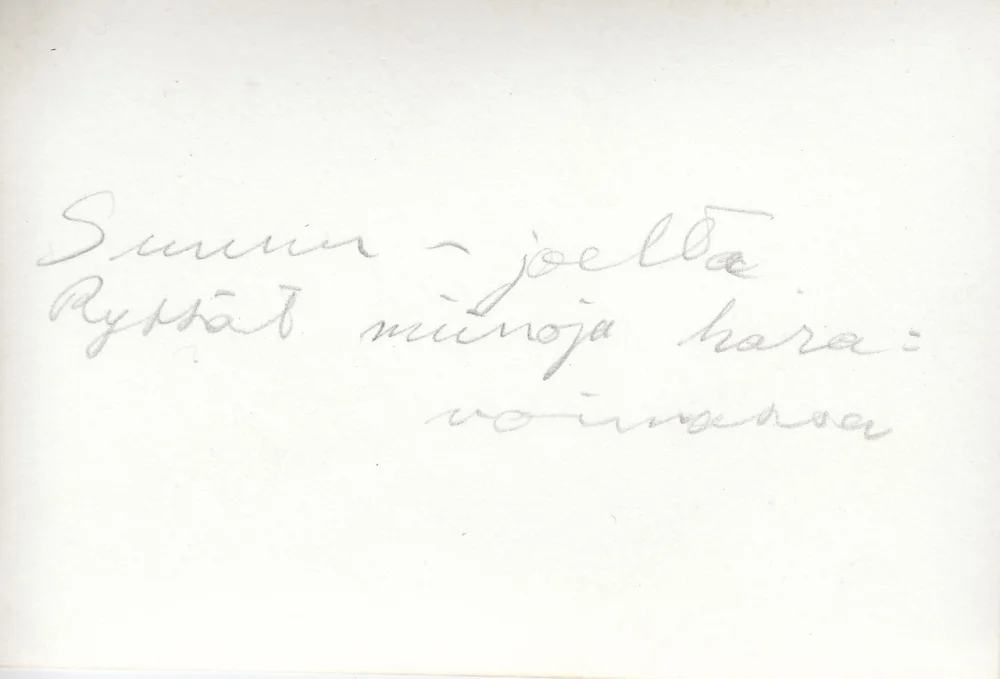 Suunu - joelta
Ryssät miinoja hara=
voimassa